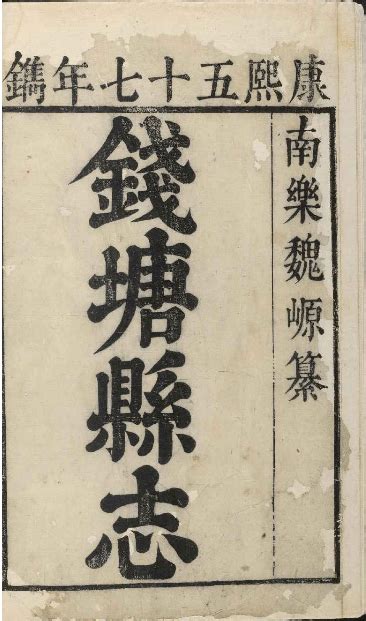 康熙五十七年鐫
南樂魏㟲纂
錢塘縣志